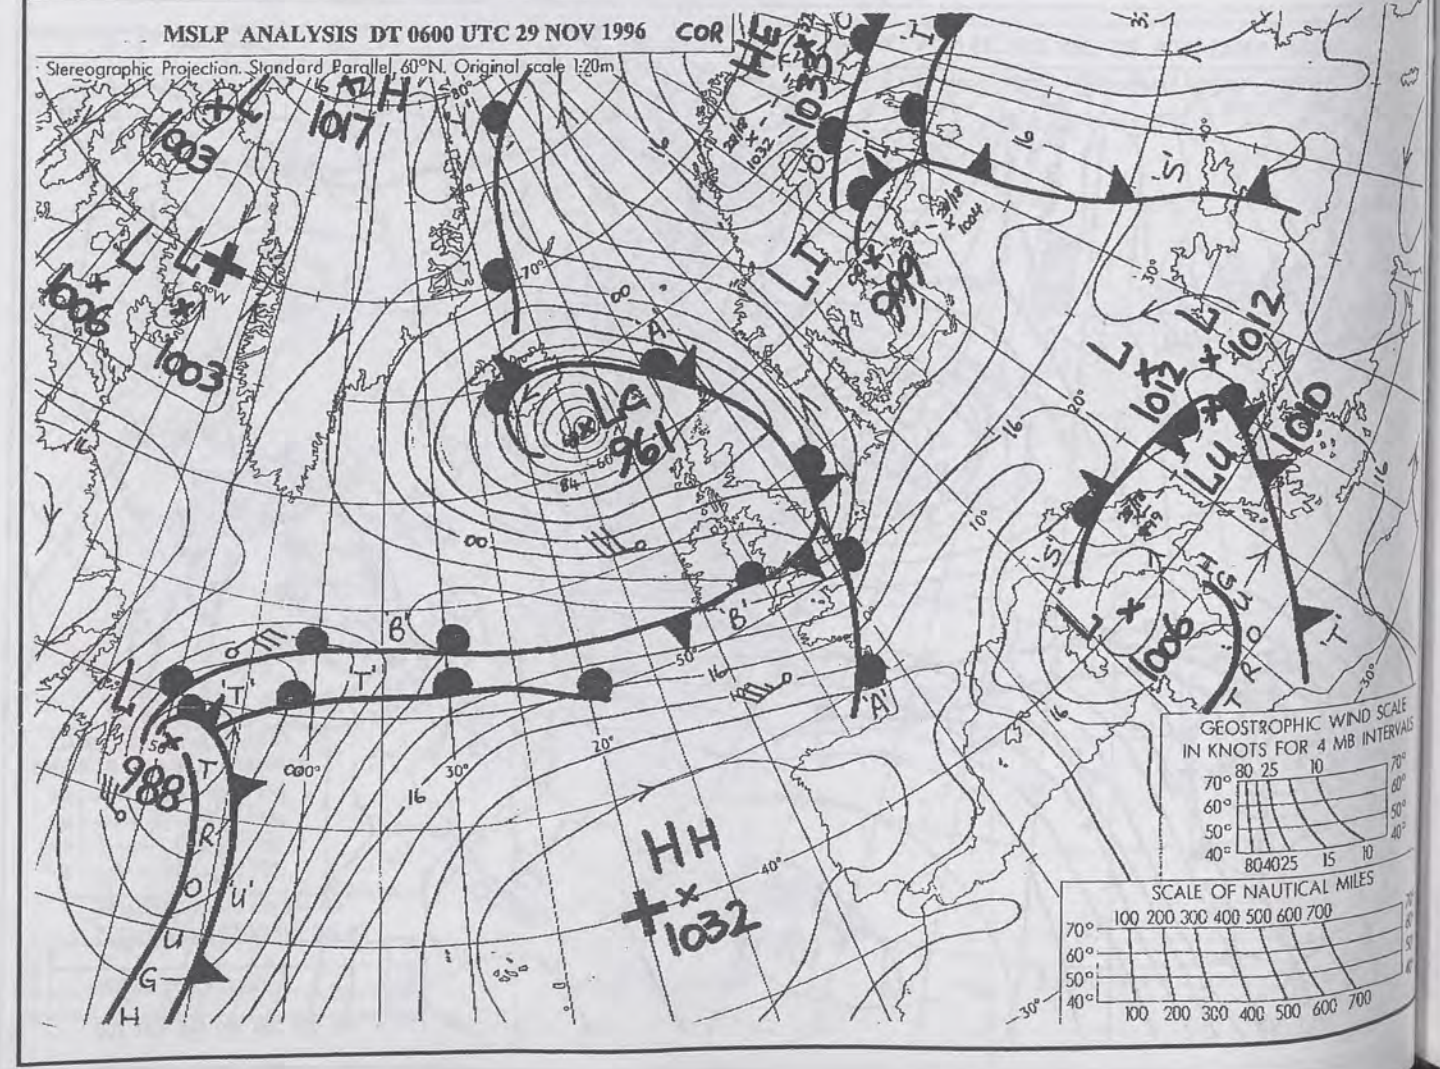 MSLP ANALYSIS DT 0600 UTC 29 NOV 1996 COR
Stereographic Projection. Standard Parallel 60°N. Original scale 1:20m
L
1003
H
1017
HE
1033
1032
16
16
'S'
1004
LI
999
L
1006
L
60°W
1003
80°
70°
00
A'
LG
961
60
84
00
L
1012
L
1012
LU
1010
20°
16
10°
30°
16
'S'
L
1006
T R O U G H
'T'
30°
16
B'
B'
50°
16
A'
L
'T'
T'
50
988
T
R
O
U
G
H
'U'
000°
30°
20°
16
HH
1032
40°
30°
GEOSTROPHIC WIND SCALE
IN KNOTS FOR 4 MB INTERVALS
80 25 10
70° 70°
60° 60°
50° 50°
40° 40°
80 40 25 15 10
SCALE OF NAUTICAL MILES
100 200 300 400 500 600 700
70°
60°
50°
40°
100 200 300 400 500 600 700